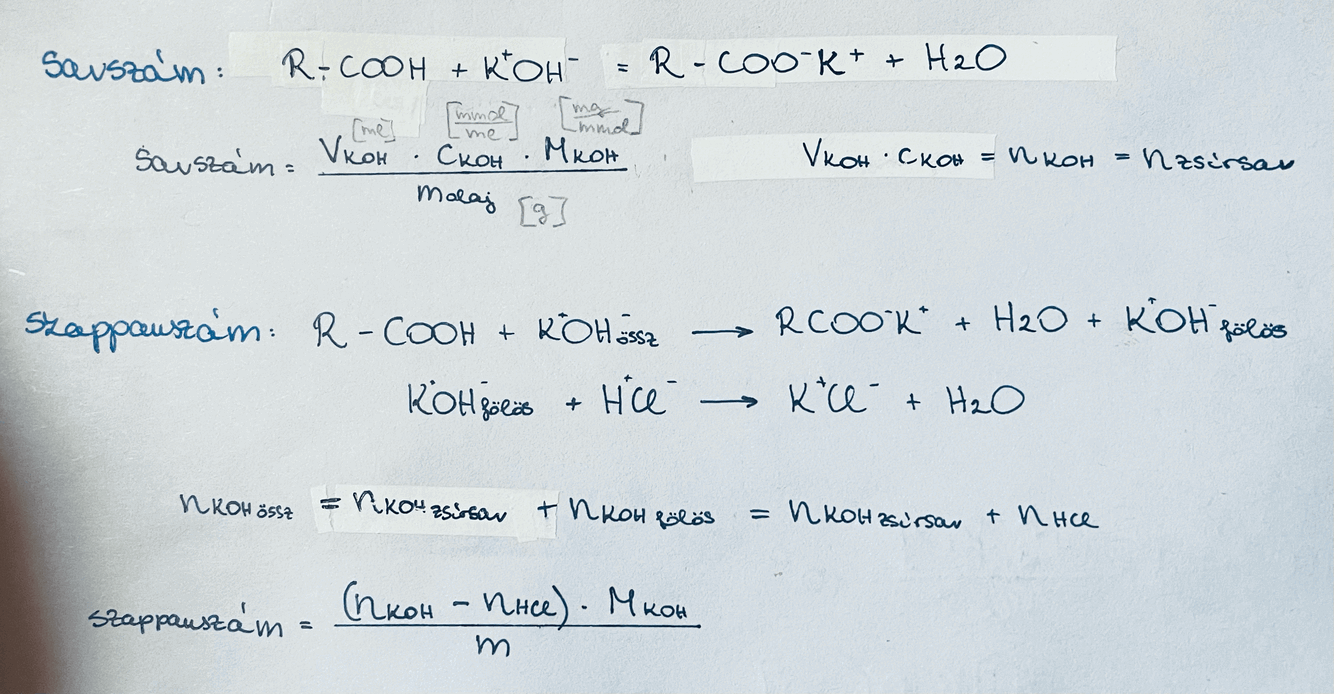 Savszám: R-COOH + K⁺OH⁻ = R-COO⁻K⁺ + H2O
[ml] [mmol/ml] [mg/mmol]
Savszám = (VKOH · CKOH · MKOH) / molaj [g]
VKOH · CKOH = nKOH = nzsírsav
Szappanszám: R-COOH + K⁺OH⁻össz → RCOO⁻K⁺ + H2O + K⁺OH⁻fölös
K⁺OH⁻fölös + H⁺Cl⁻ → K⁺Cl⁻ + H2O
nKOH össz = nKOH zsírsav + nKOH fölös = nKOH zsírsav + nHCl
szappanszám = ((nKOH - nHCl) · MKOH) / m